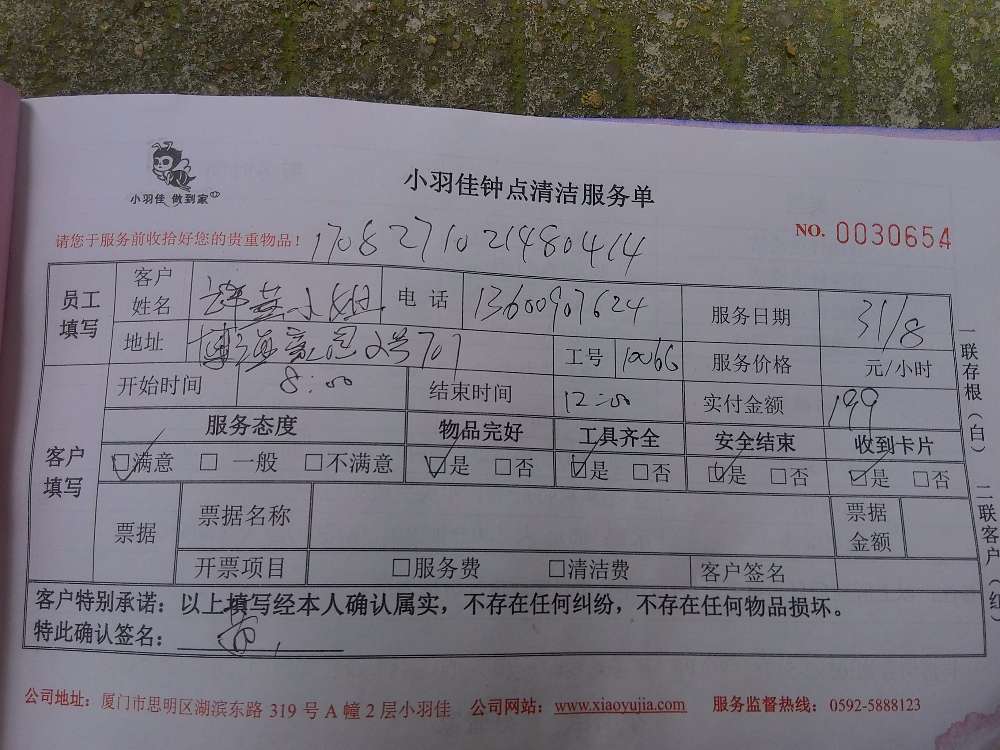 小羽佳 做到家
小羽佳钟点清洁服务单
请您于服务前收拾好您的贵重物品！
NO. 0030654
17082710214804 14
员工填写
客户姓名 小姐 电话 13600907624 服务日期 31/8
地址 2号707 工号 10066 服务价格 元/小时
客户填写
开始时间 8:00 结束时间 12:00 实付金额 199
服务态度 物品完好 工具齐全 安全结束 收到卡片
☑满意 □一般 □不满意 ☑是 □否 ☑是 □否 ☑是 □否 ☑是 □否
票据 票据名称 票据金额
开票项目 □服务费 □清洁费 客户签名
客户特别承诺：以上填写经本人确认属实，不存在任何纠纷，不存在任何物品损坏。
特此确认签名：
一联存根（白） 二联客户（红
公司地址：厦门市思明区湖滨东路 319 号 A 幢 2 层小羽佳 公司网站：www.xiaoyujia.com 服务监督热线：0592-5888123